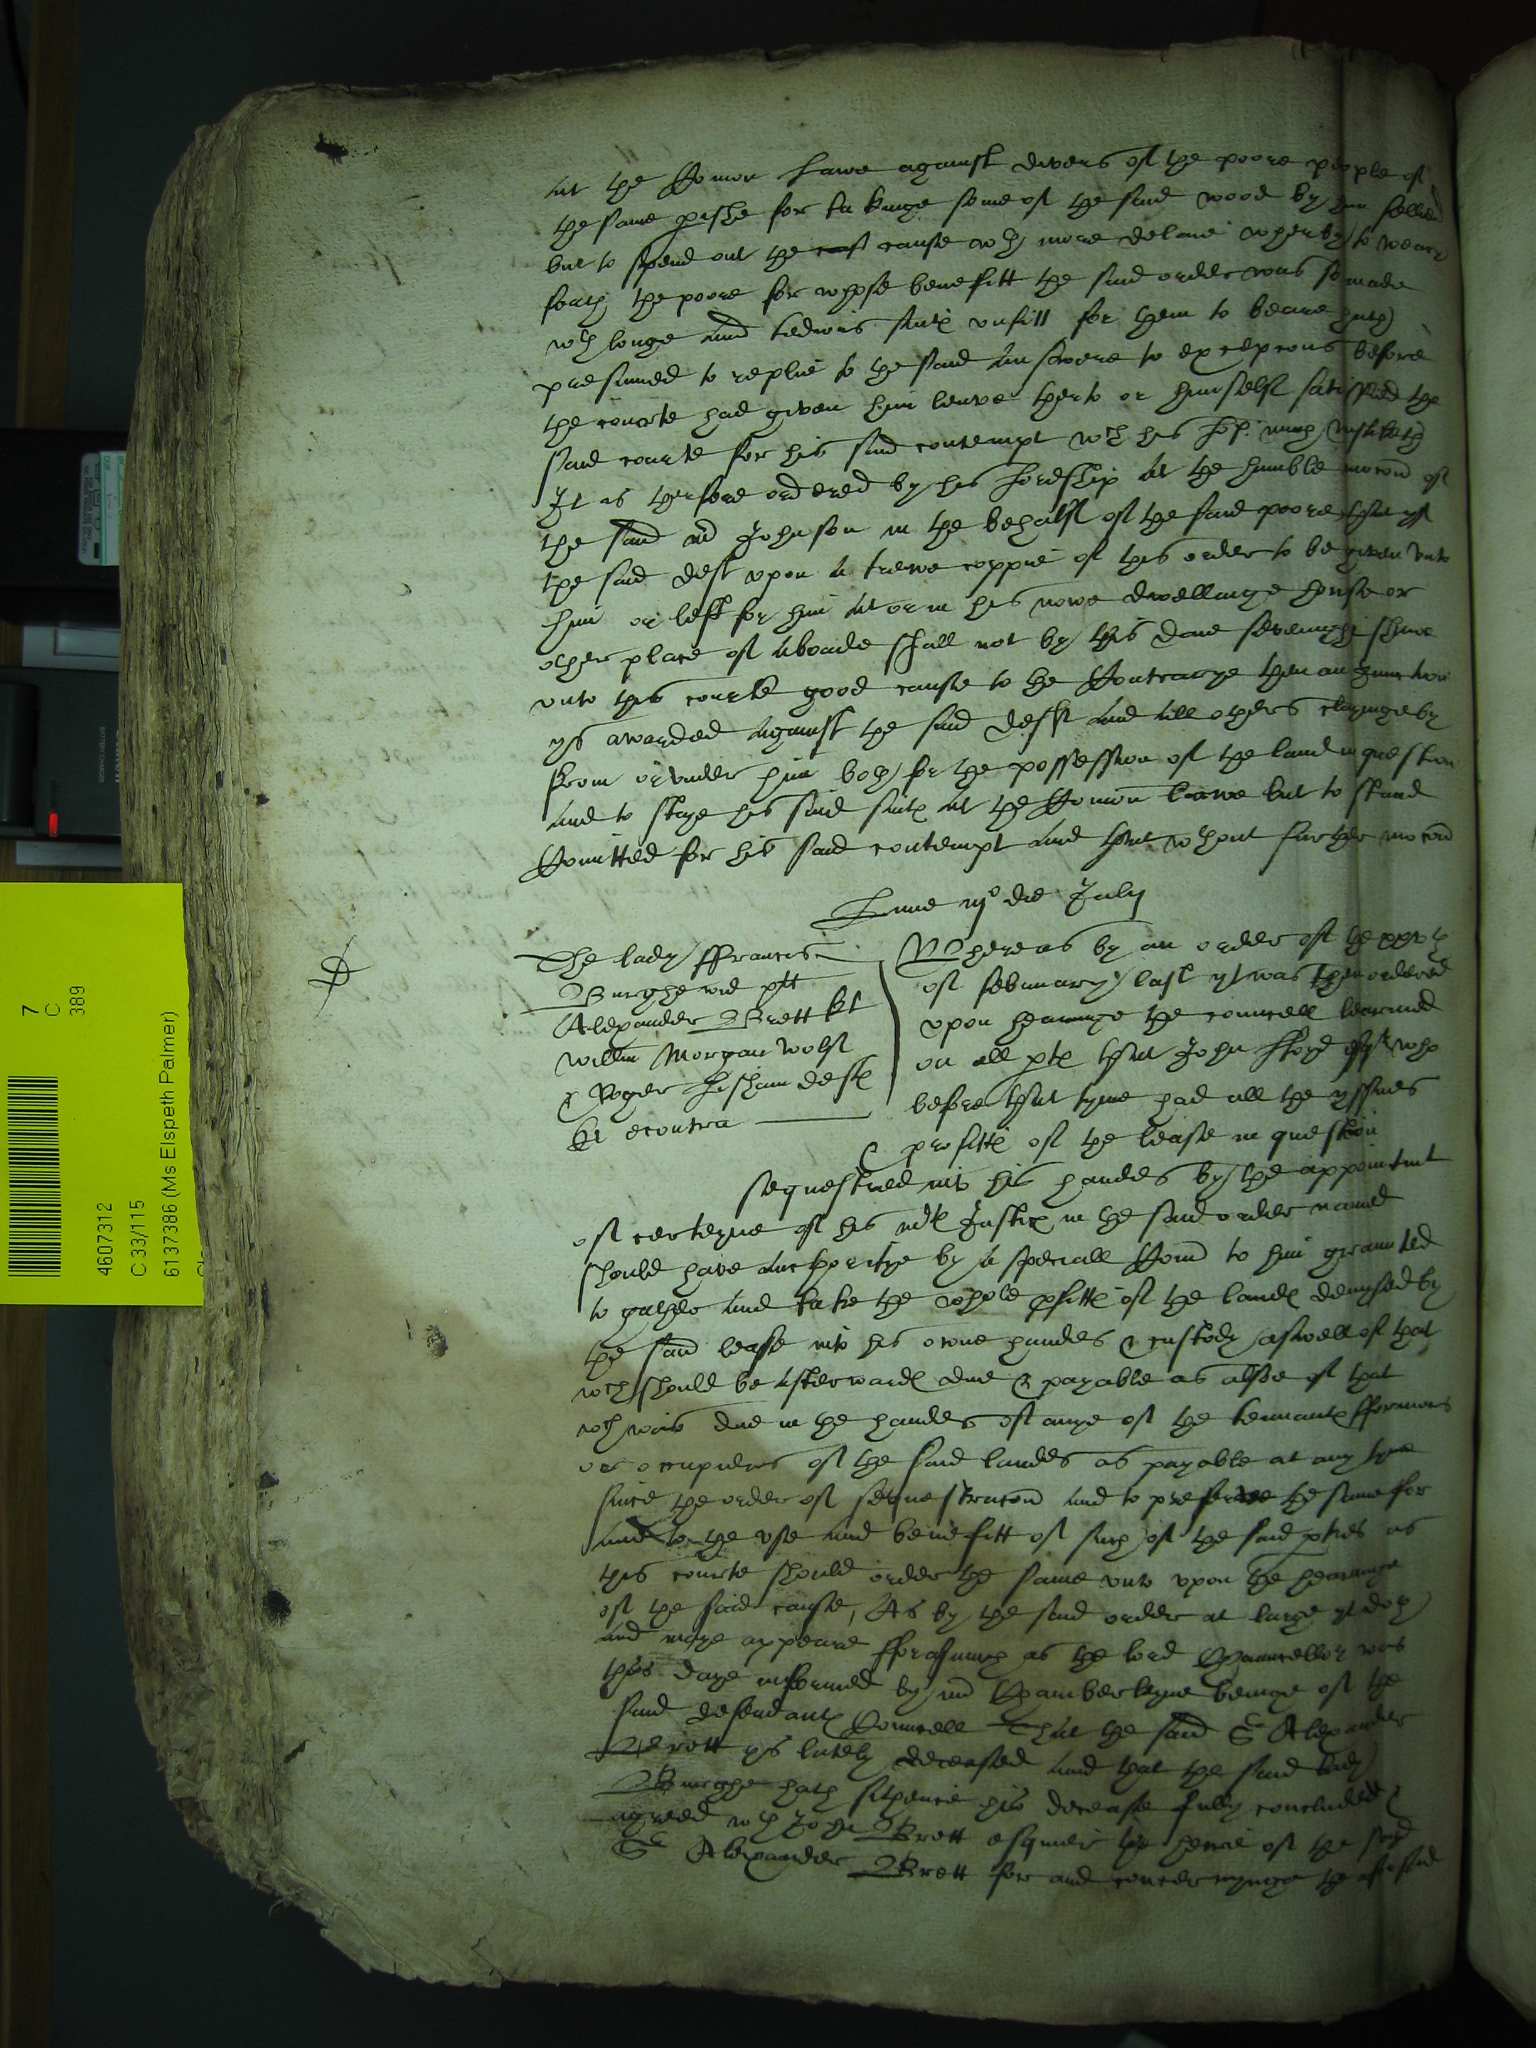 at the Comon Lawe against divers of the poore people of
the same pishe for takinge some of the said wood by him felled
but to spend out the cause wth more delaie wherby to weary
forth the poore for whose benefitt the said order was so made
wch longe and tedious sute unfitt for them to beare hath
presumed to replie to the said answere to excepcons before
the courte had given him leave therto or himself satisfied the
said courte for his said contempt wch his Lop. much mislketh
It is therfore ordered by his Lordship at the humble mocon of
the said mr Johnson in the behalf of the said poore that yf
the said deft upon a trewe coppie of this order to be given unto
him or left for him at or in his nowe dwellinge house or
other place of aboade shall not by this daie sevenight shewe
unto this courte good cause to the Contrarye then an Iniunction
ys awarded against the said deft and all others clayminge by
from or under him both for the possession of the land in question
and to staye his said sute at the Comon lawe but to stand
Comitted for his said contempt and that wthout further mocon
Lune die July
The lady ffrancis
Burghe wid plt
Alexander Brett kt
Willm Morgan
& Roger defts
Et econtra
Whereas by an order of the
of february last yt was then ordered
upon hearinge the councell learned
on all ptes that John lloyd esqr who
before that tyme had all the yssues
& profitte of the lease in question
sequestred into his handes by the appointmt
of certeyne of his mats Justices in the said order named
should have aucthoritye by a speciall Comission to him graunted
to gather and take the whole pfitte of the landes demysed by
the said lease into his owne handes & custody aswell of that
wch should be afterwardes due & payable as alsoe of that
wch was due in the handes of anye of the tennantes ffermors
or occupiers of the said landes as payable at any tyme
since the order of sequestracon and to preserve the same for
and to the use and benefitt of such of the said pties as
this courte should order the same unto upon the hearinge
of the said cause, As by the said order at large yt doth
and maye appeare fforasmuch as the lord Chauncellor was
this daye informed by mr Chamberleyne beinge of the
said defendantes Councell That the said Sr Alexander
Brett ys lately deceased and that the said lady
Burghe hath sithence his decease fully concluded &
agreed wth John Brett esquier the heire of the said
Sr Alexander Brett for and concernynge the aforesaid
7
C
389
4607312
C 33/115
6137386 (Ms Elspeth Palmer)